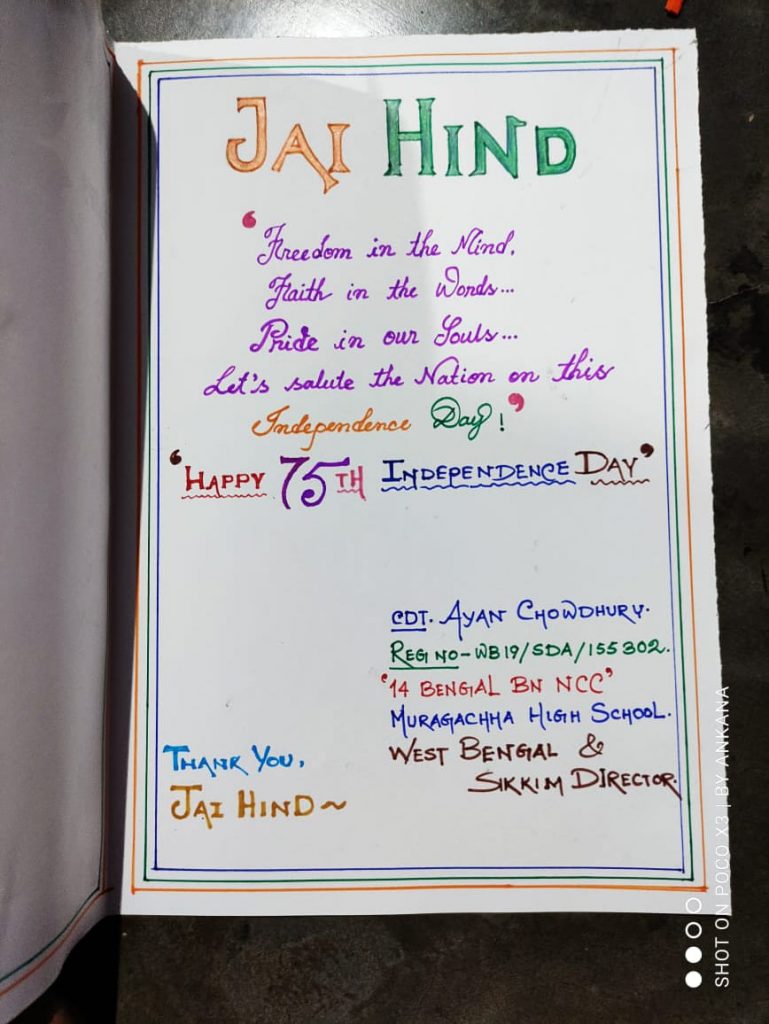 JAI HIND
‘Freedom in the Mind,
Faith in the Words...
Pride in our Souls...
Let's salute the Nation on this
Independence Day!’
‘HAPPY 75TH INDEPENDENCE DAY’
CDT. AYAN CHOWDHURY.
REG NO-WB19/SDA/155302.
‘14 BENGAL BN NCC’
MURAGACHHA HIGH SCHOOL.
WEST BENGAL &
SIKKIM DIRECTOR.
THANK YOU,
JAI HIND~
SHOT ON POCO X3 | BY ANKANA